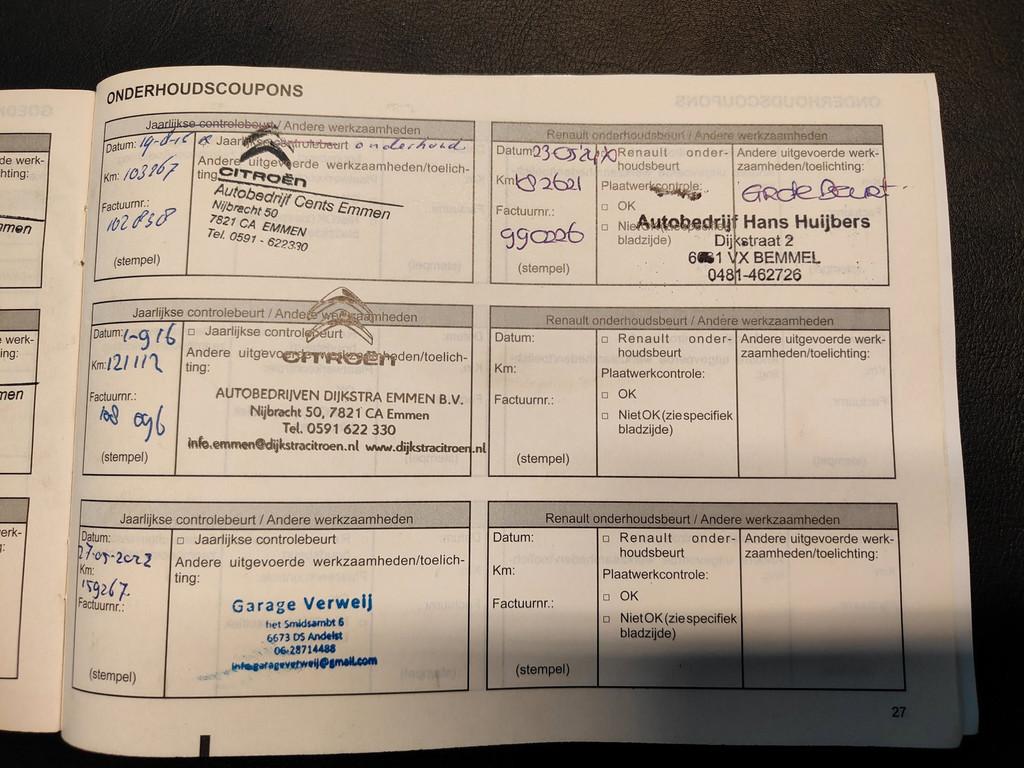 ONDERHOUDSCOUPONS
Jaarlijkse controlebeurt / Andere werkzaamheden
Datum:
Jaarlijkse controlebeurt onderhoud
Andere uitgevoerde werkzaamheden/toelichting:
Km: 103267
CITROËN
Autobedrijf Cents Emmen
Nijbracht 50
7821 CA EMMEN
Tel. 0591 - 622330
Factuurnr.:
102838
(stempel)
Renault onderhoudsbeurt / Andere werkzaamheden
Datum
Km
Factuurnr.:
990226
(stempel)
Renault onder-
houdsbeurt
Plaatwerkcontrole:
□ OK
□ Niet OK (zie specifiek
bladzijde)
Andere uitgevoerde werk-
zaamheden/toelichting:
Grote Beurt
Autobedrijf Hans Huijbers
Dijkstraat 2
6681 VX BEMMEL
0481-462726
Jaarlijkse controlebeurt / Andere werkzaamheden
Datum: 1-9 16
□ Jaarlijkse controlebeurt
Andere uitgevoerde werkzaamheden/toelich-
ting:
Km: 121112
CITROËN
Factuurnr.:
108 096
(stempel)
AUTOBEDRIJVEN DIJKSTRA EMMEN B.V.
Nijbracht 50, 7821 CA Emmen
Tel. 0591 622 330
info.emmen@dijkstracitroen.nl www.dijkstracitroen.nl
Renault onderhoudsbeurt / Andere werkzaamheden
Datum:
Km:
Factuurnr.:
(stempel)
□ Renault onder-
houdsbeurt
Plaatwerkcontrole:
□ OK
□ Niet OK (zie specifiek
bladzijde)
Andere uitgevoerde werk-
zaamheden/toelichting:
Jaarlijkse controlebeurt / Andere werkzaamheden
Datum:
27-05-2022
Km:
159267.
Factuurnr.:
(stempel)
□ Jaarlijkse controlebeurt
Andere uitgevoerde werkzaamheden/toelich-
ting:
Garage Verweij
het Smidsambt 6
6673 DS Andelst
06-28714488
info.garageverweij@gmail.com
Renault onderhoudsbeurt / Andere werkzaamheden
Datum:
Km:
Factuurnr.:
(stempel)
□ Renault onder-
houdsbeurt
Plaatwerkcontrole:
□ OK
□ Niet OK (zie specifiek
bladzijde)
Andere uitgevoerde werk-
zaamheden/toelichting:
27